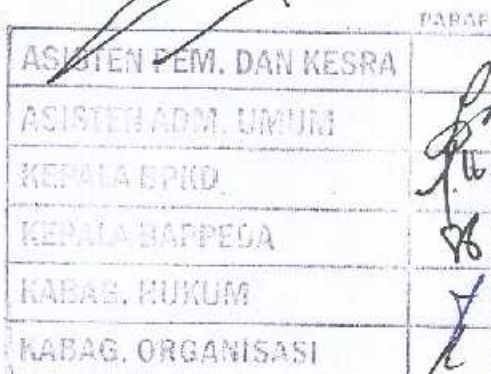 PARAF
ASISTEN PEM. DAN KESRA
ASISTEN ADM. UMUM
KEPALA BPKD
KEPALA BAPPEDA
KABAG. HUKUM
KABAG. ORGANISASI